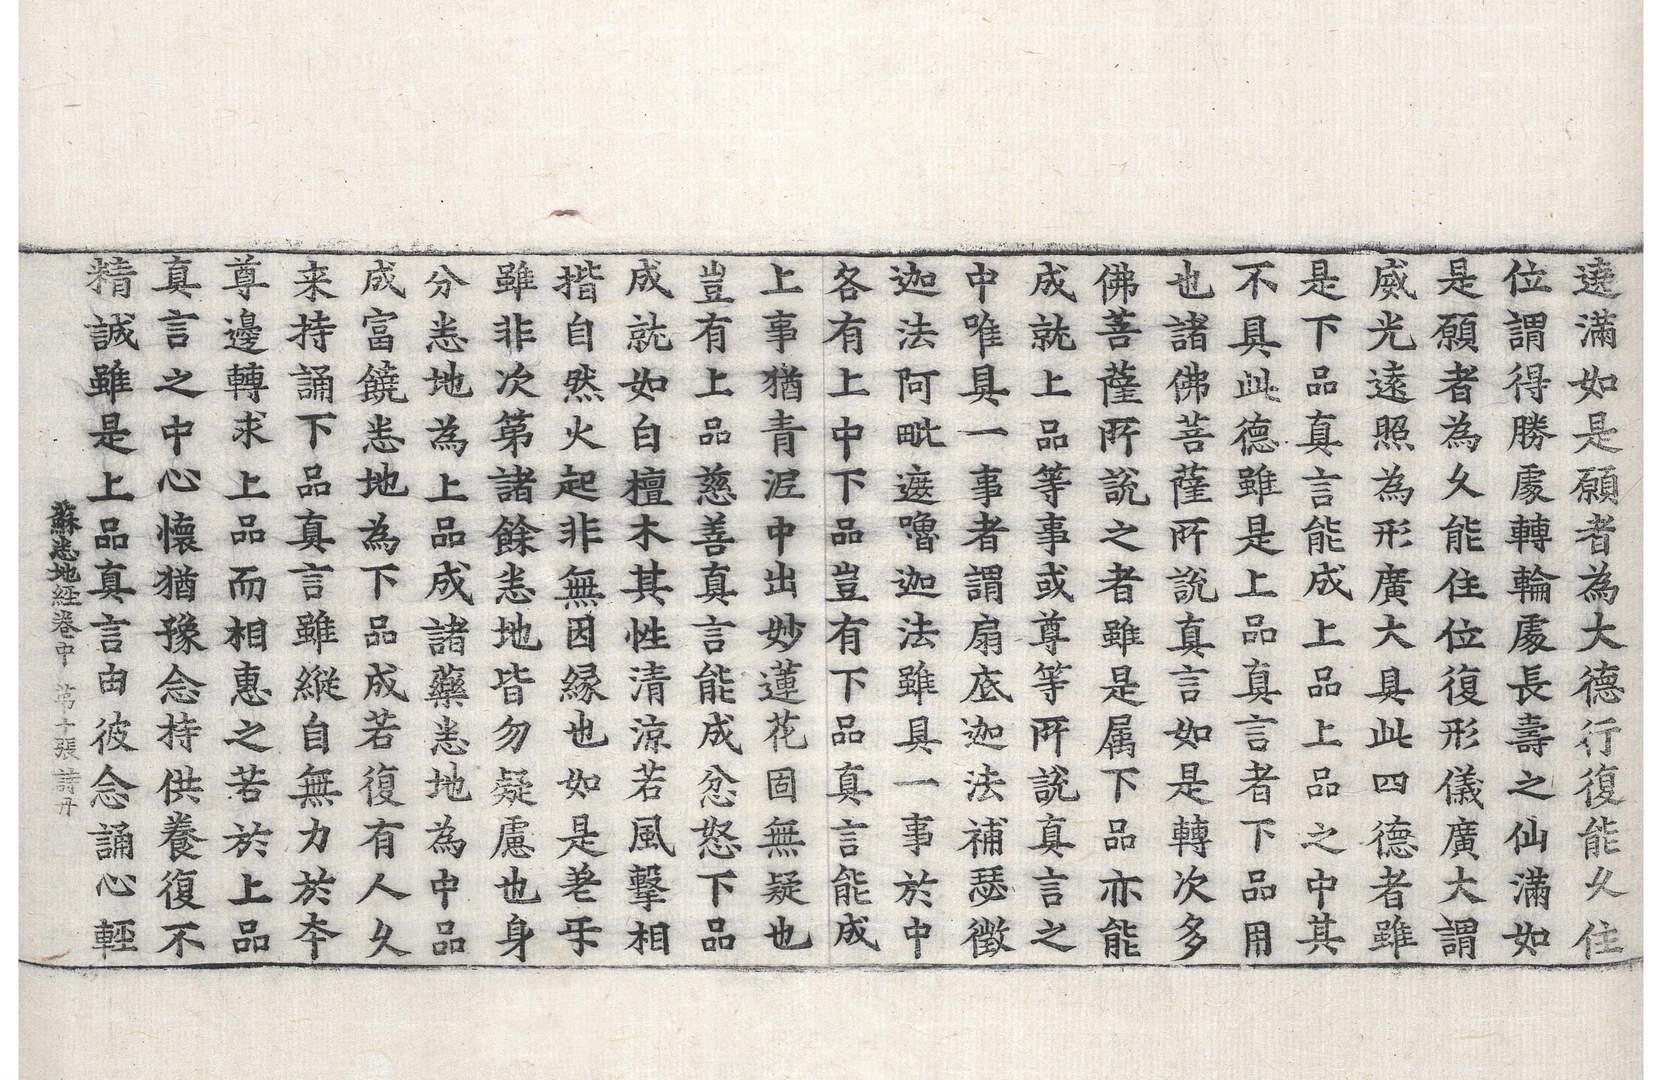 遶滿如是願者為大德行復能久住
位謂得勝處轉輪處長壽之仙滿如
是願者為久能住位復形儀廣大謂
威光遠照為形廣大具此四德者雖
是下品真言能成上品上品之中其
不具此德雖是上品真言者下品用
也諸佛菩薩所說真言如是轉次多
佛菩薩所說之者雖是属下品亦能
成就上品等事或尊等所說真言之
中唯具一事者謂扇底迦法補瑟徵
迦法阿毗遮嚕迦法雖具一事於中
各有上中下品豈有下品真言能成
上事猶青泥中出妙蓮花固無疑也
豈有上品慈善真言能成忿怒下品
成就如白檀木其性清涼若風擊相
揩自然火起非無因縁也如是差互
雖非次第諸餘悉地皆勿疑慮也身
分悉地為上品成諸藥悉地為中品
成富饒悉地為下品成若復有人久
来持誦下品真言雖縱自無力於夲
尊邊轉求上品而相惠之若於上品
真言之中心懷猶豫念持供養復不
精誠雖是上品真言由彼念誦心輕
蘇悉地経卷中 苐十張 詩丹